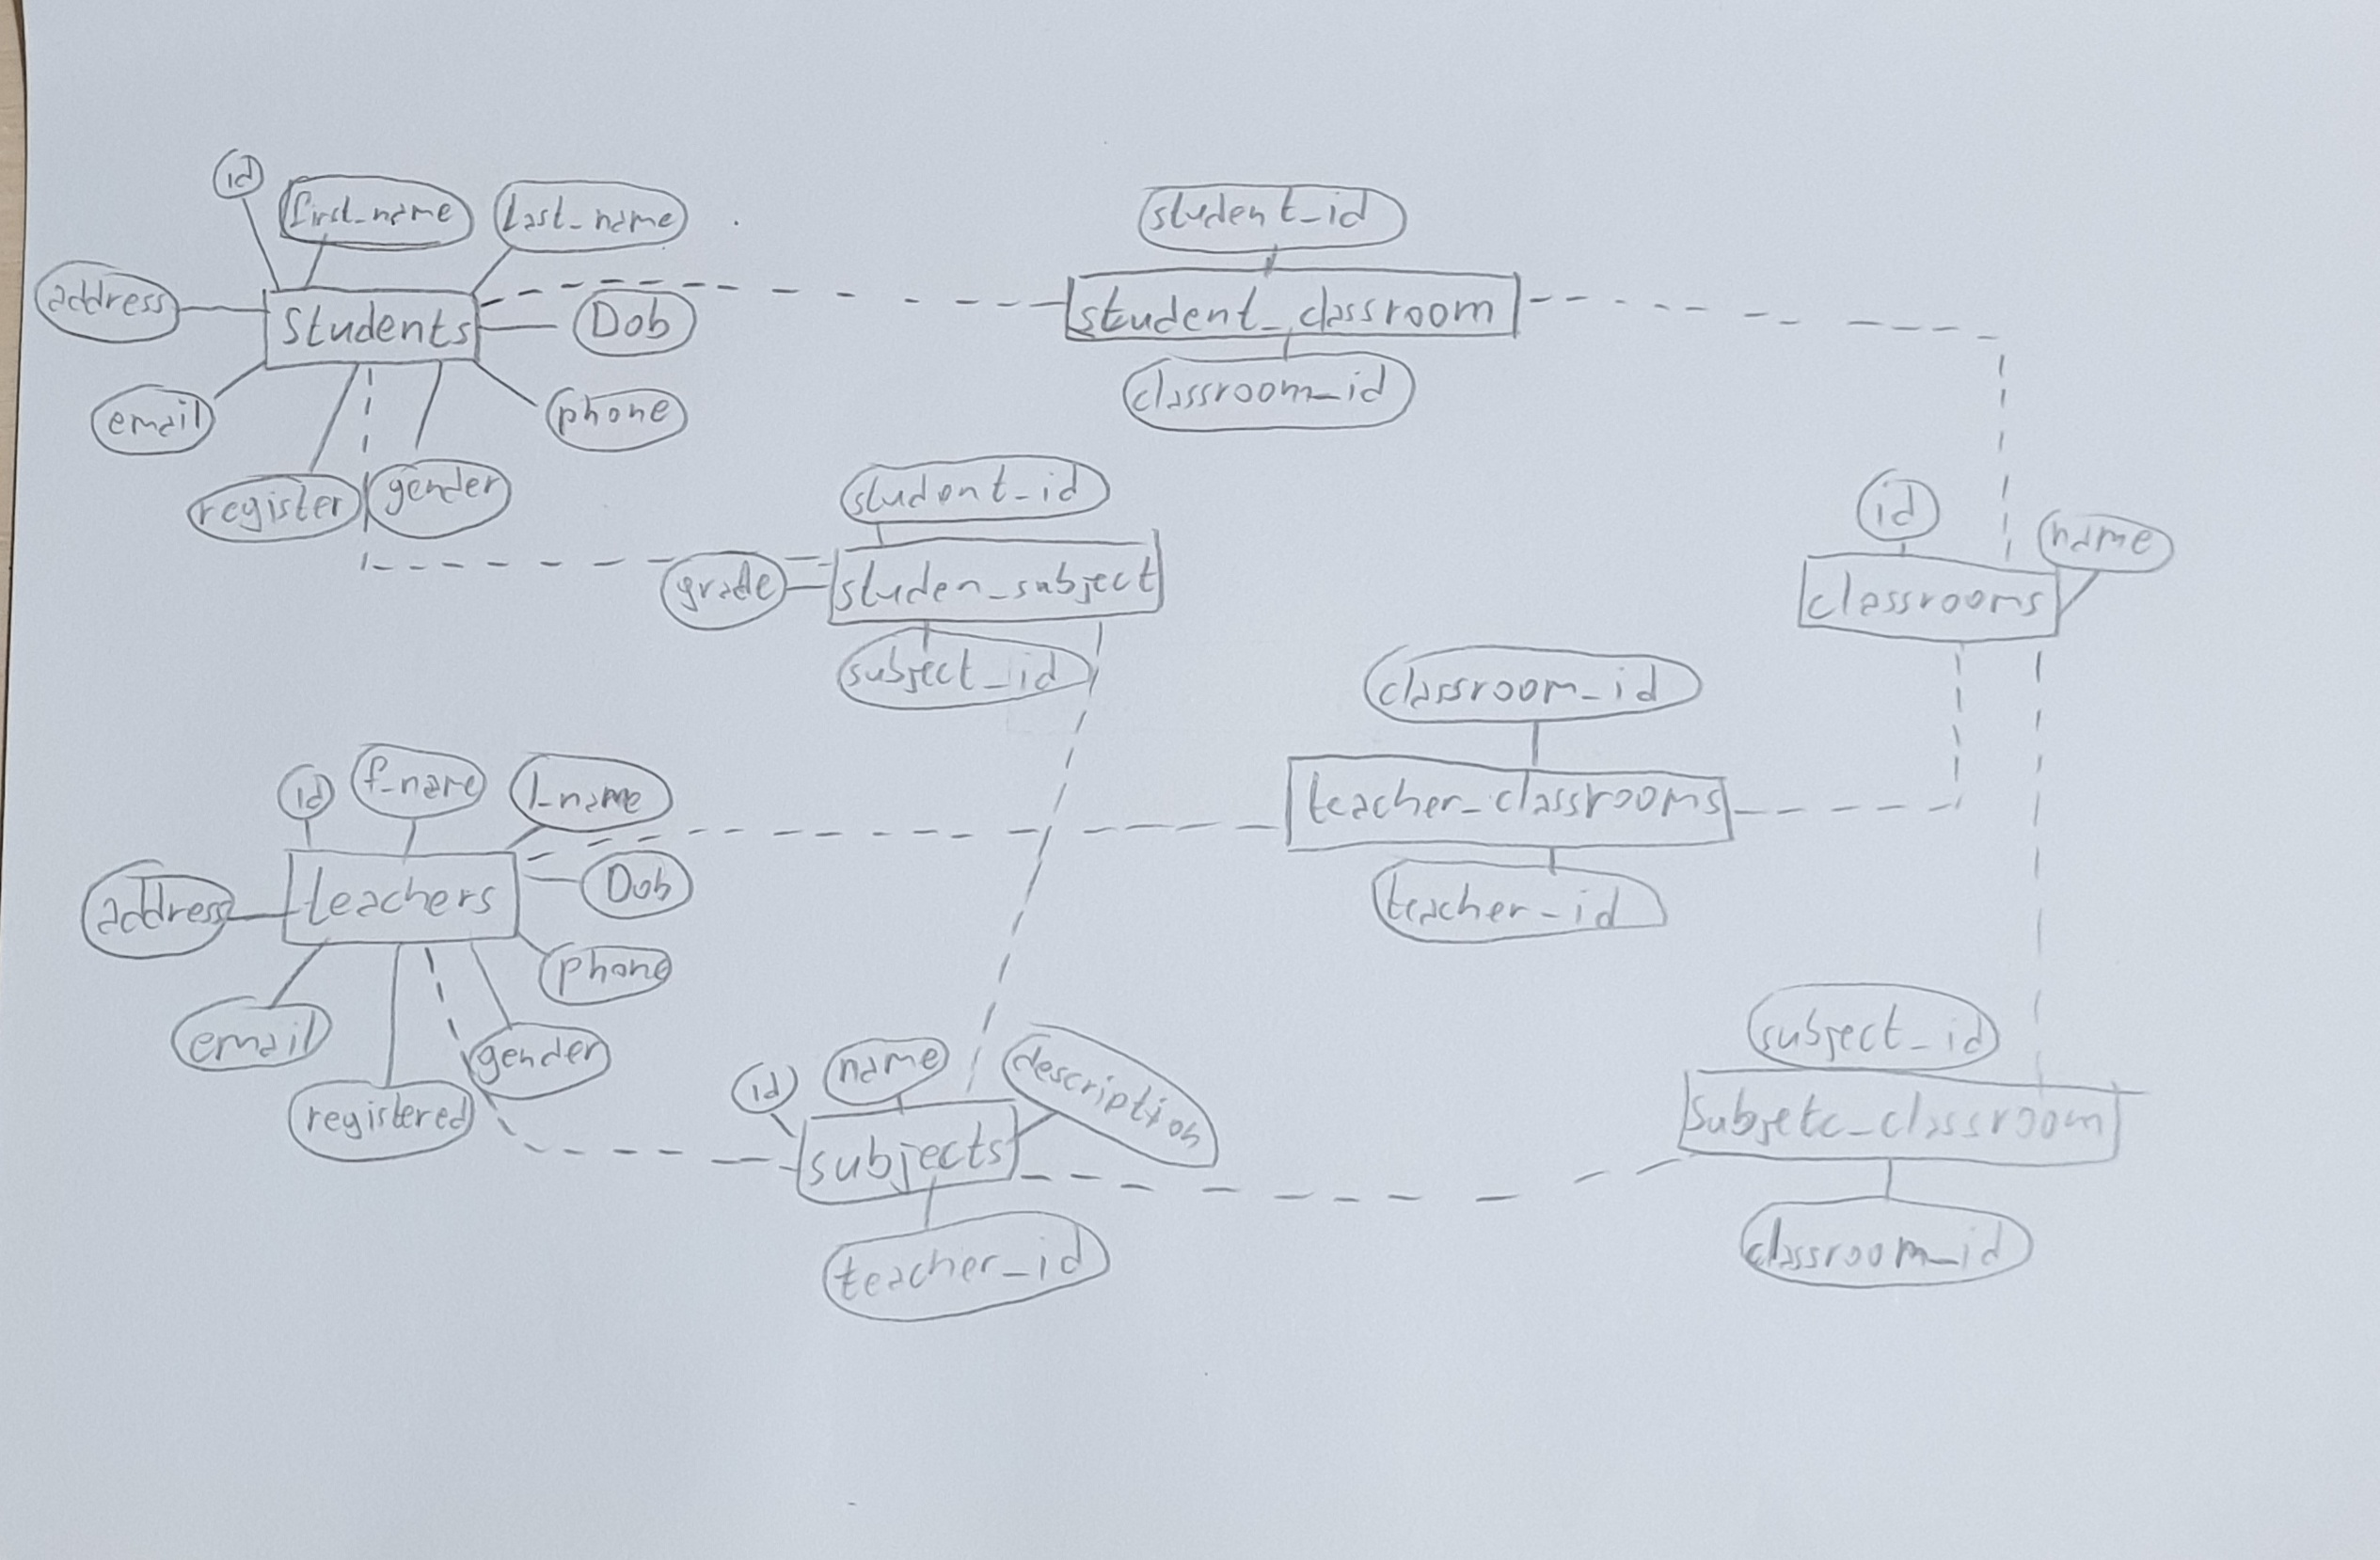 id
first_name
Last_name
address
students
Dob
email
phone
register
gender
student_id
student_classroom
classroom_id
student_id
grade
studen_subject
subject_id
id
name
classrooms
classroom_id
teacher_classrooms
teacher_id
id
f_name
l_name
address
teachers
Dob
phone
email
gender
registered
id
name
description
subjects
teacher_id
subject_id
Subjetc_classroom
classroom_id